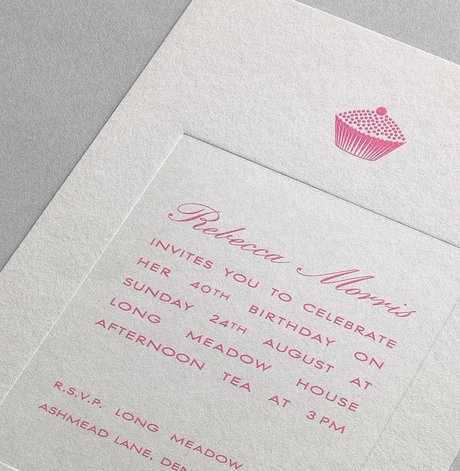 Rebecca Morris
INVITES YOU TO CELEBRATE
HER 40TH BIRTHDAY ON
SUNDAY 24TH AUGUST AT
LONG MEADOW HOUSE
AFTERNOON TEA AT 3PM
R.S.V.P. LONG MEADOW
ASHMEAD LANE, DEN